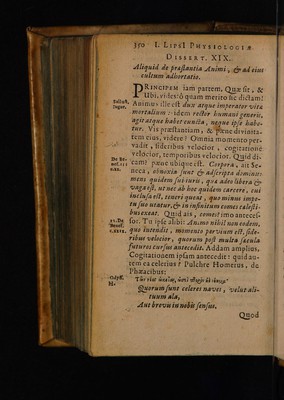 350 I. LIPSI PHYSIOLOGIÆ
DISSERT. XIX.
Aliquid de præstantia Animi, & ad eius
cultum adhortatio.
PRINCIPEM iam partem. Quæ sit, &
Vbi, vides: ô quam merito sic dictam!
Animus ille est dux atque imperator vita
mortalium: idem rector humani generis,
agit atque habet cuncta, neque ipse habe-
tur. Vis præstantiam, & pæne diuinita-
tem eius, videre? Omnia momento per-
vadit, sideribus velocior, cogitatione
velocior, temporibus velocior. Quid di-
cam? pæne vbique est. Corpora, ait Se-
neca, obnoxia sunt & adscripta dominis:
mens quidem sui iuris, quæ adeo libera &
vaga est, ut nec ab hoc quidem carcere, cui
inclusa est, teneri queat, quo minus impe-
tu suo utatur, & in infinitum comes cælesti-
bus exeat. Quid ais, comes? imo anteces-
sor. Tu ipse alibi: Animo nihil non eodem,
quo intendit, momento pervium est, side-
ribus velocior, quorum post multa sæcula
futuros cursus antecedit. Addam amplius,
Cogitationem ipsam antecedit: quid au-
tem ea celerius? Pulchre Homerus, de
Phæacibus:
Quorum sunt celeres naves, velut ali-
tuum ala,
Aut brevis in nobis sensus.
Quod
Sallust.
Iugur.
De Be-
nef. III.
c.xx.
IV. De
Benef.
Odyss.
H.